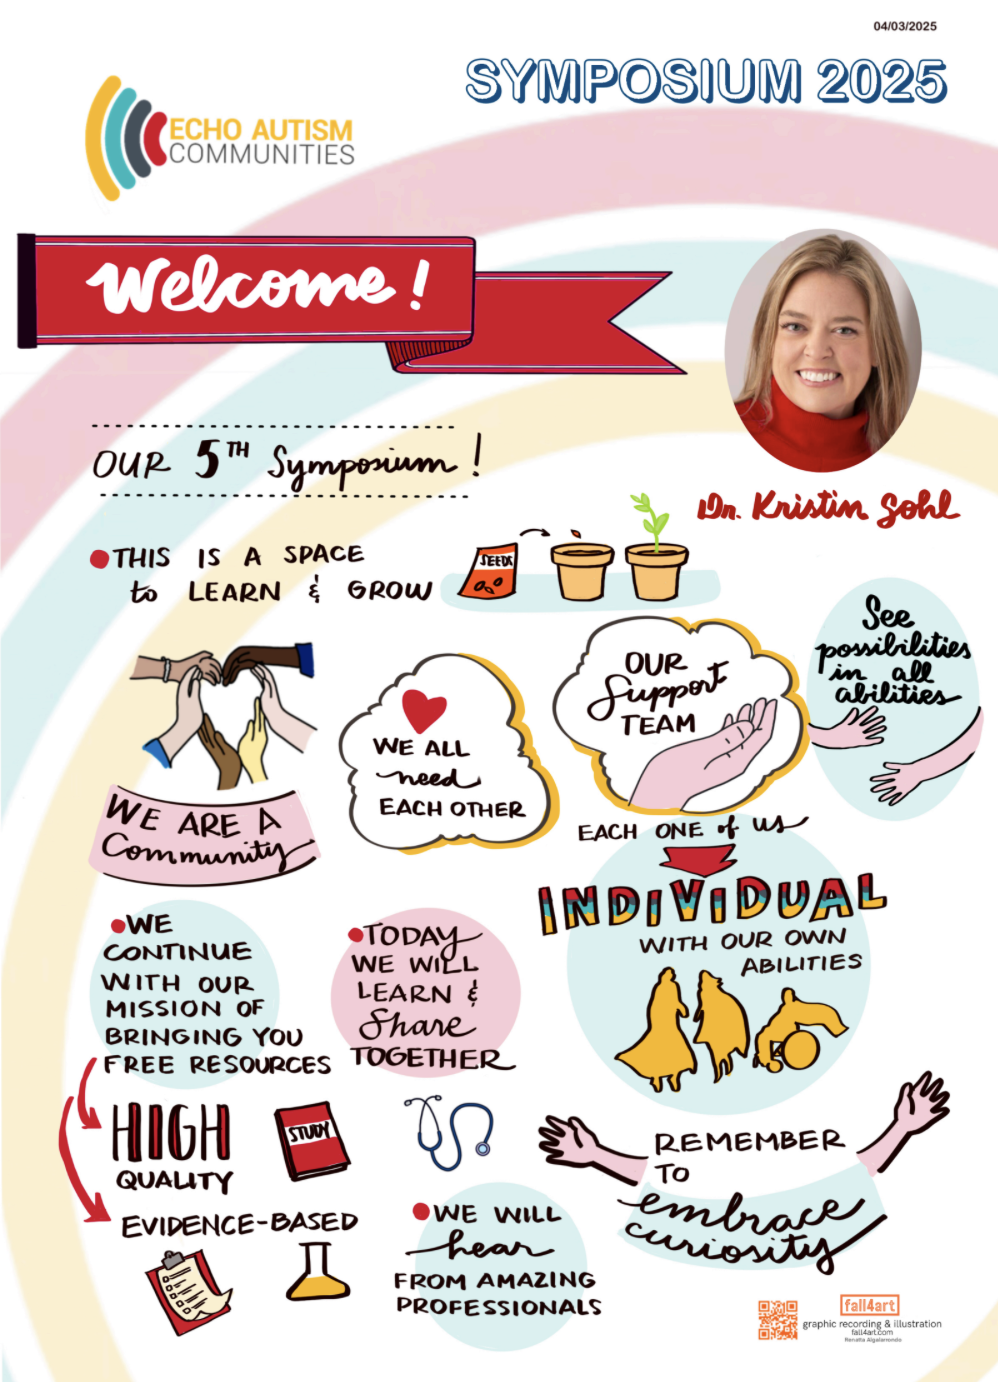 04/03/2025
SYMPOSIUM 2025
ECHO AUTISM
COMMUNITIES
Welcome!
OUR 5TH Symposium!
Dr. Kristin Sohl
THIS IS A SPACE
to LEARN & GROW
SEEDS
See
possibilities
in all
abilities
OUR
Support
TEAM
WE ALL
need
EACH OTHER
WE ARE A
Community
EACH ONE of us
INDIVIDUAL
WITH OUR OWN
ABILITIES
WE
CONTINUE
WITH OUR
MISSION OF
BRINGING YOU
FREE RESOURCES
TODAY
WE WILL
LEARN &
Share
TOGETHER
HIGH
QUALITY
STUDY
EVIDENCE-BASED
REMEMBER
TO
embrace
curiosity
WE WILL
hear
FROM AMAZING
PROFESSIONALS
fall4art
graphic recording & illustration
fall4art.com
Renata Algalarrondo